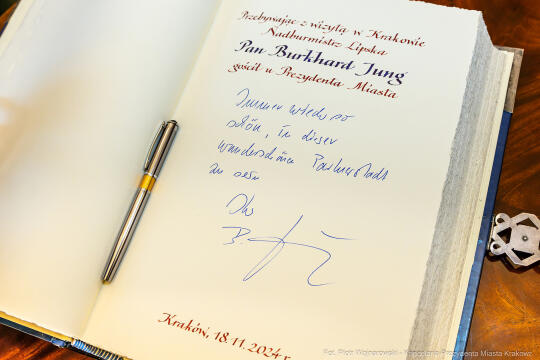 Przebywając z wizytą w Krakowie
Nadburmistrz Lipska
Pan Burkhard Jung
gościł u Prezydenta Miasta
Immer wieder so
schön, in dieser
wunderschönen Partnerstadt
zu sein
Ihr
B.
Kraków, 18.11.2024 r.
Fot. Piotr Wojnarowski - Kancelaria Prezydenta Miasta Krakowa